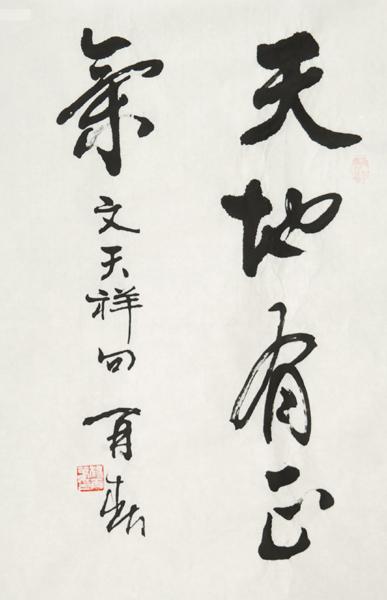 天地有正
氣
文天祥句